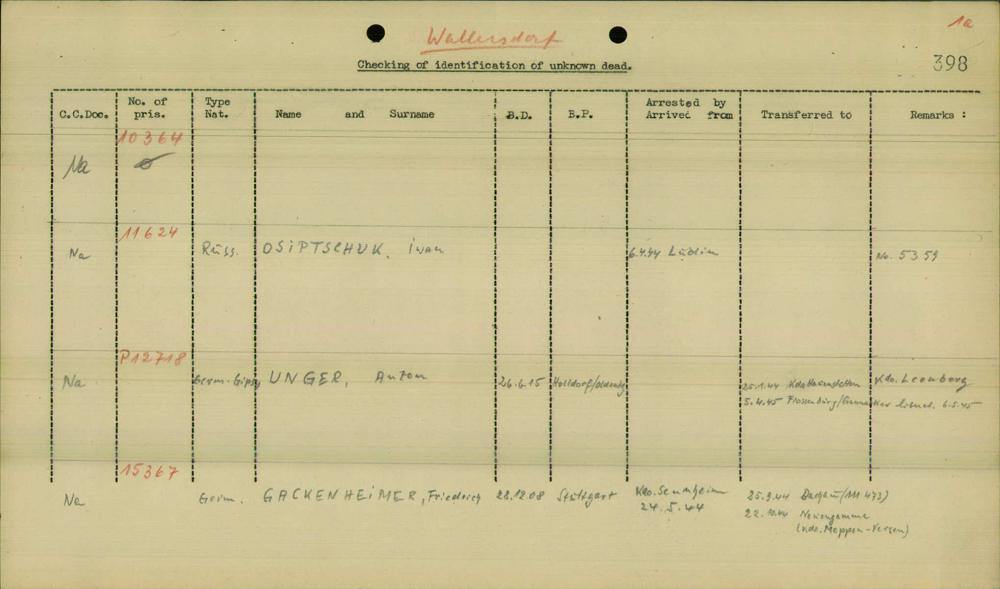 1a
Wallersdorf
398
Checking of identification of unknown dead.
C.C.Doc. No. of pris. Type Nat. Name and Surname B.D. B.P. Arrested by Arrived from Transferred to Remarks :
10364
Na
11624
Na Russ. OSIPTSCHUK, Iwan 6.4.44 Lublin No. 5359
P12718
Na Germ.-Gipsy UNGER, Anton 26.6.15 25.1.44 Kdo. Leonberg
5.4.45 Flossenbürg/
15367
Na Germ. GACKENHEIMER, Friedrich 22.12.08 Stuttgart Kdo. Sennheim 25.9.44 Dachau (111 473)
24.5.44 22.10.44 Neuengamme
(Kdo. Meppen-Versen)